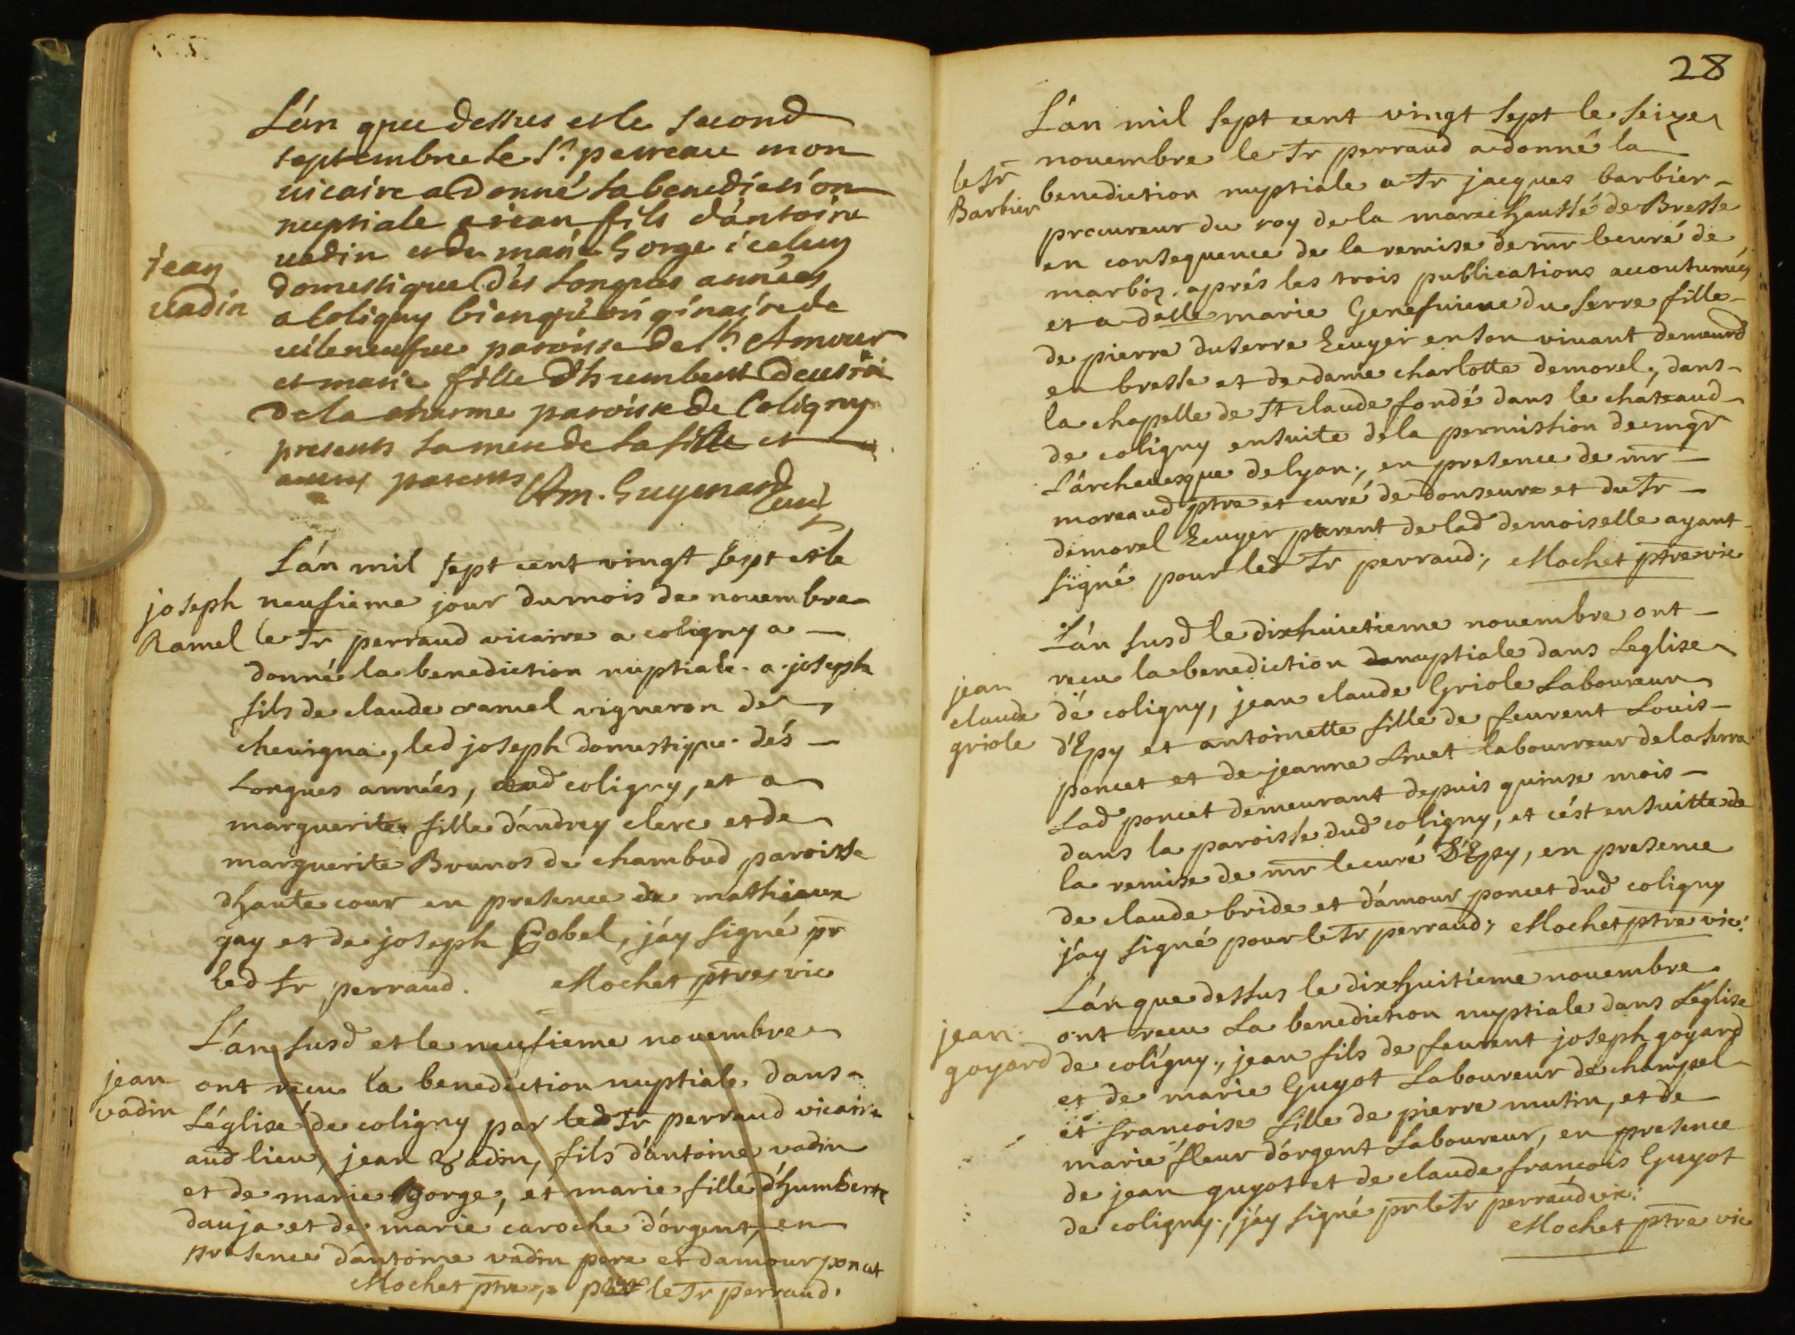 L'án que dessus et le second
septembre le Sr. perreau mon
vicaire a donné la benediction
nuptiale a jean fils d'ántoine
jean
vadin
vadin et de marie Gorge iceluy
domestique dés longues années
a Coligny bienque originaire de
villeneufve paroisse de St. Amour
et marie fille d'humbert
de la charme paroisse de Coligny
presents la mere de la fille et
autres parents Am. Guymard curé
L'án mil sept cent vingt sept et le
joseph
Ramel
neufieme jour du mois de novembre
le Sr perraud vicaire a coligny a
donné la benediction nuptiale a joseph
fils de claude ramel vigneron de
chevigna, led joseph domestique dés
longues années, aud coligny, et a
marguerite fille d'ándrey clerc et de
marguerite Brunos de chambud paroisse
d'haute cour en presence de mathieux
gay et de joseph Gobel, j'áy signé pr
led Sr perraud. Mochet ptre vic
L'án susd et le neufieme novembre
jean
vadin
ont receu la benediction nuptiale dans
L'église de coligny par led Sr perraud vicaire
aud lieu, jean Vadin, fils d'ántoine vadin
et de marie gorge, et marie fille d'humbert
dauja et de marie caroche d'orgent, en
presence d'ántoine vadin pere et d'amour poncet
Mochet ptre pour le Sr perraud.
28
L'án mil sept cent vingt sept le seize
le Sr
Barbier
novembre le Sr perraud a donné la
benediction nuptiale a Sr jacques barbier
procureur du roy de la marechaussé de Bresse
en consequence de la remise de mr le curé de
marbóz. aprés les trois publications accoutumées
et a delle marie Genefvieve du serre fille
de pierre duserre Ecuyer en son vivant demeurd
en bresse et de dame charlotte demorel, dans
la chapelle de St claude fondé dans le chateaud
de coligny ensuite de la permission de mgr
L'árchevesque de lyon, en presence de mr
moreaud ptre et curé de donseure et du Sr
demorel Ecuyer parent de lad demoiselle ayant
signé pour led Sr perraud; Mochet ptre vic
L'án susd le dixhuictieme novembre ont
jean
claude
griole
receu la benediction nuptiale dans Leglise
de coligny, jean claude Griole Laboureur
d'Epy et antoinette fille de feurent Louis
poncet et de jeanne Livet laboureur de la serra
Lad poncet demeurant depuis quinse mois
dans la paroisse dud coligny, et c'ést ensuitte de
la remise de mr le curé D'Epy, en presence
de claude bride et d'ámour poncet dud coligny
j'áy signé pour le Sr perraud; Mochet ptre vic.
L'án que dessus le dixhuitieme novembre
jean
goyard
ont receu La benediction nuptiale dans L'église
de coligny, jean fils de feurent joseph goyard
et de marie Guyot Laboureur de champel
et francoise fille de pierre mutin, et de
marie fleur d'órgent Laboureur, en presence
de jean guyot et de claude francois Guyot
de coligny, j'áy signé pr le Sr perraud vic:
Mochet ptre vic